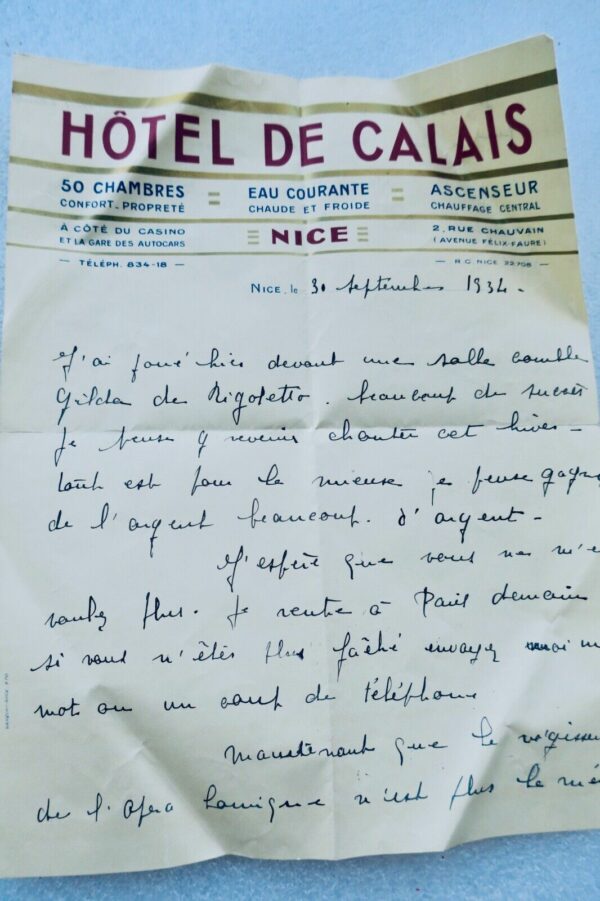 HÔTEL DE CALAIS
50 CHAMBRES
CONFORT-PROPRETÉ
EAU COURANTE
CHAUDE ET FROIDE
ASCENSEUR
CHAUFFAGE CENTRAL
À CÔTÉ DU CASINO
ET LA GARE DES AUTOCARS
NICE
2, RUE CHAUVAIN
(AVENUE FÉLIX-FAURE)
— TÉLÉPH. 834-18 —
— R.C. NICE 22.708 —
NICE, le 30 septembre 1934 -
J'ai joué hier devant une salle comble
Gilda de Rigoletto. beaucoup de succès
Je pense y revenir chanter cet hiver -
tout est pour le mieux je pense gagn
de l'argent beaucoup. d'argent -
J'espère que vous ne m'e
voulez plus. Je rentre à Paris demain
si vous n'êtes plus fâché envoyez moi
mot ou un coup de téléphone
Maintenant que le régisseu
de l'Opéra Comique n'est plus le mê